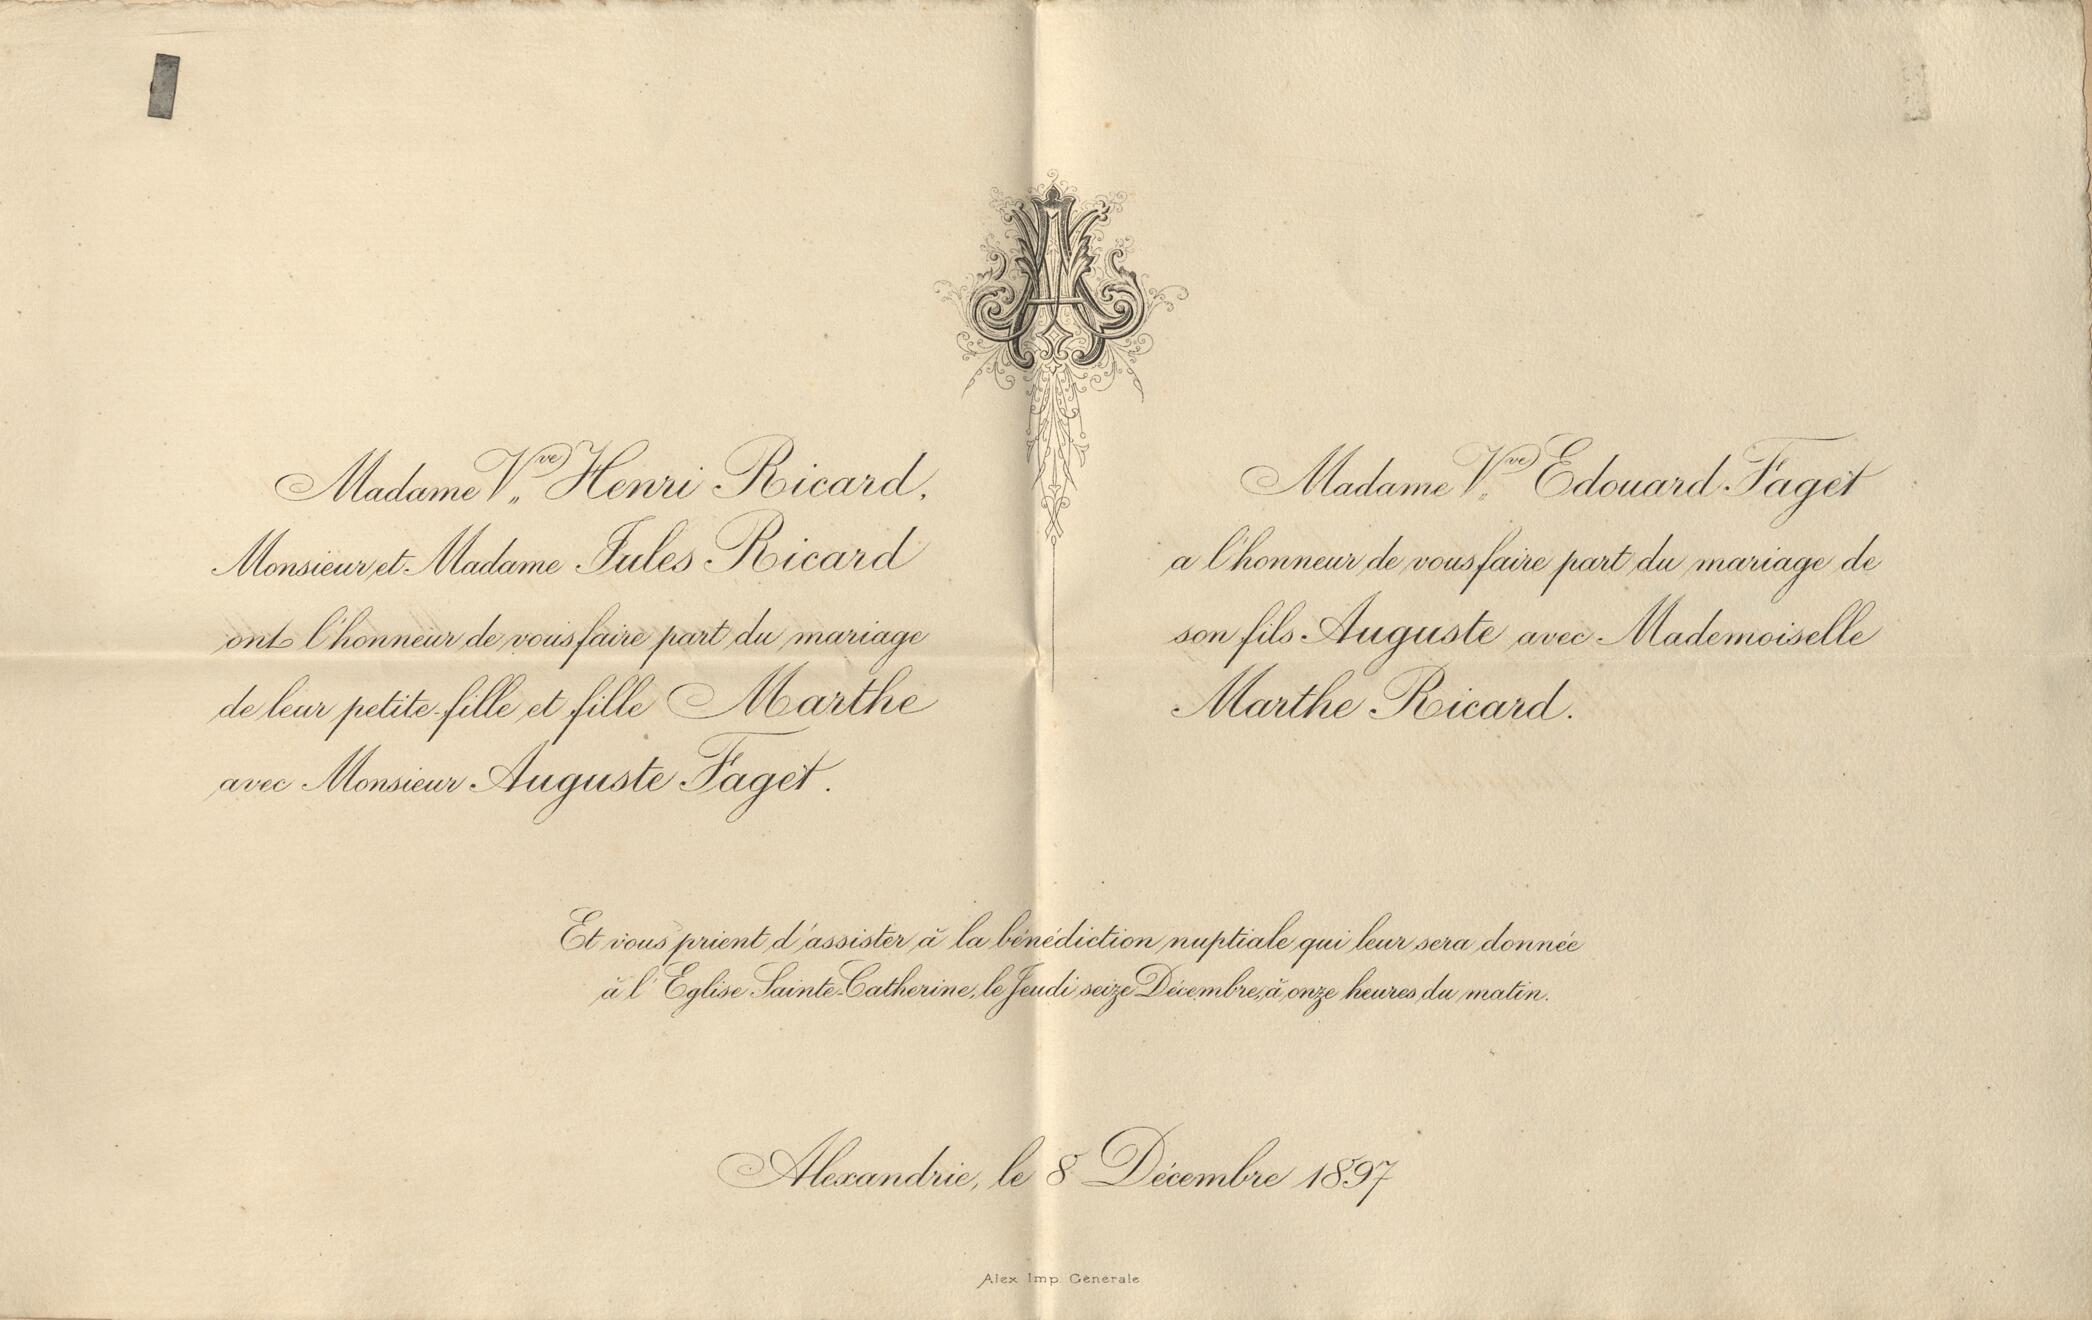 Madame Vve Henri Ricard,
Monsieur et Madame Jules Ricard
ont l'honneur de vous faire part du mariage
de leur petite-fille et fille Marthe
avec Monsieur Auguste Faget.
Madame Vve Edouard Faget
a l'honneur de vous faire part du mariage de
son fils Auguste avec Mademoiselle
Marthe Ricard.
Et vous prient d'assister à la bénédiction nuptiale qui leur sera donnée
à l'Eglise Sainte-Catherine, le Jeudi seize Décembre, à onze heures du matin.
Alexandrie, le 8 Décembre 1897
Alex Imp. Générale